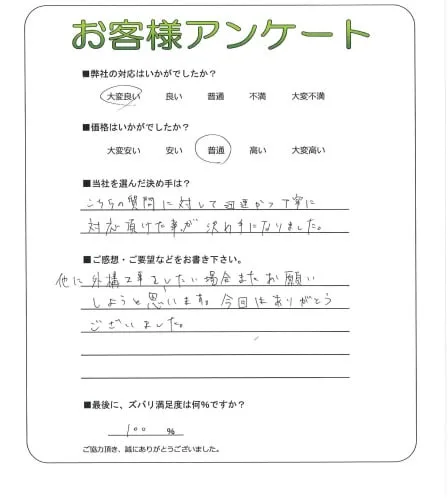 お客様アンケート
■弊社の対応はいかがでしたか？
大変良い 良い 普通 不満 大変不満
■価格はいかがでしたか？
大変安い 安い 普通 高い 大変高い
■当社を選んだ決め手は？
こちらの質問に対して迅速かつ丁寧に
対応頂けた事が決め手になりました。
■ご感想・ご要望などをお書き下さい。
他に外構工事をしたい場合またお願い
しようと思います。今回はありがとう
ございました。
■最後に、ズバリ満足度は何%ですか？
100 %
ご協力頂き、誠にありがとうございました。